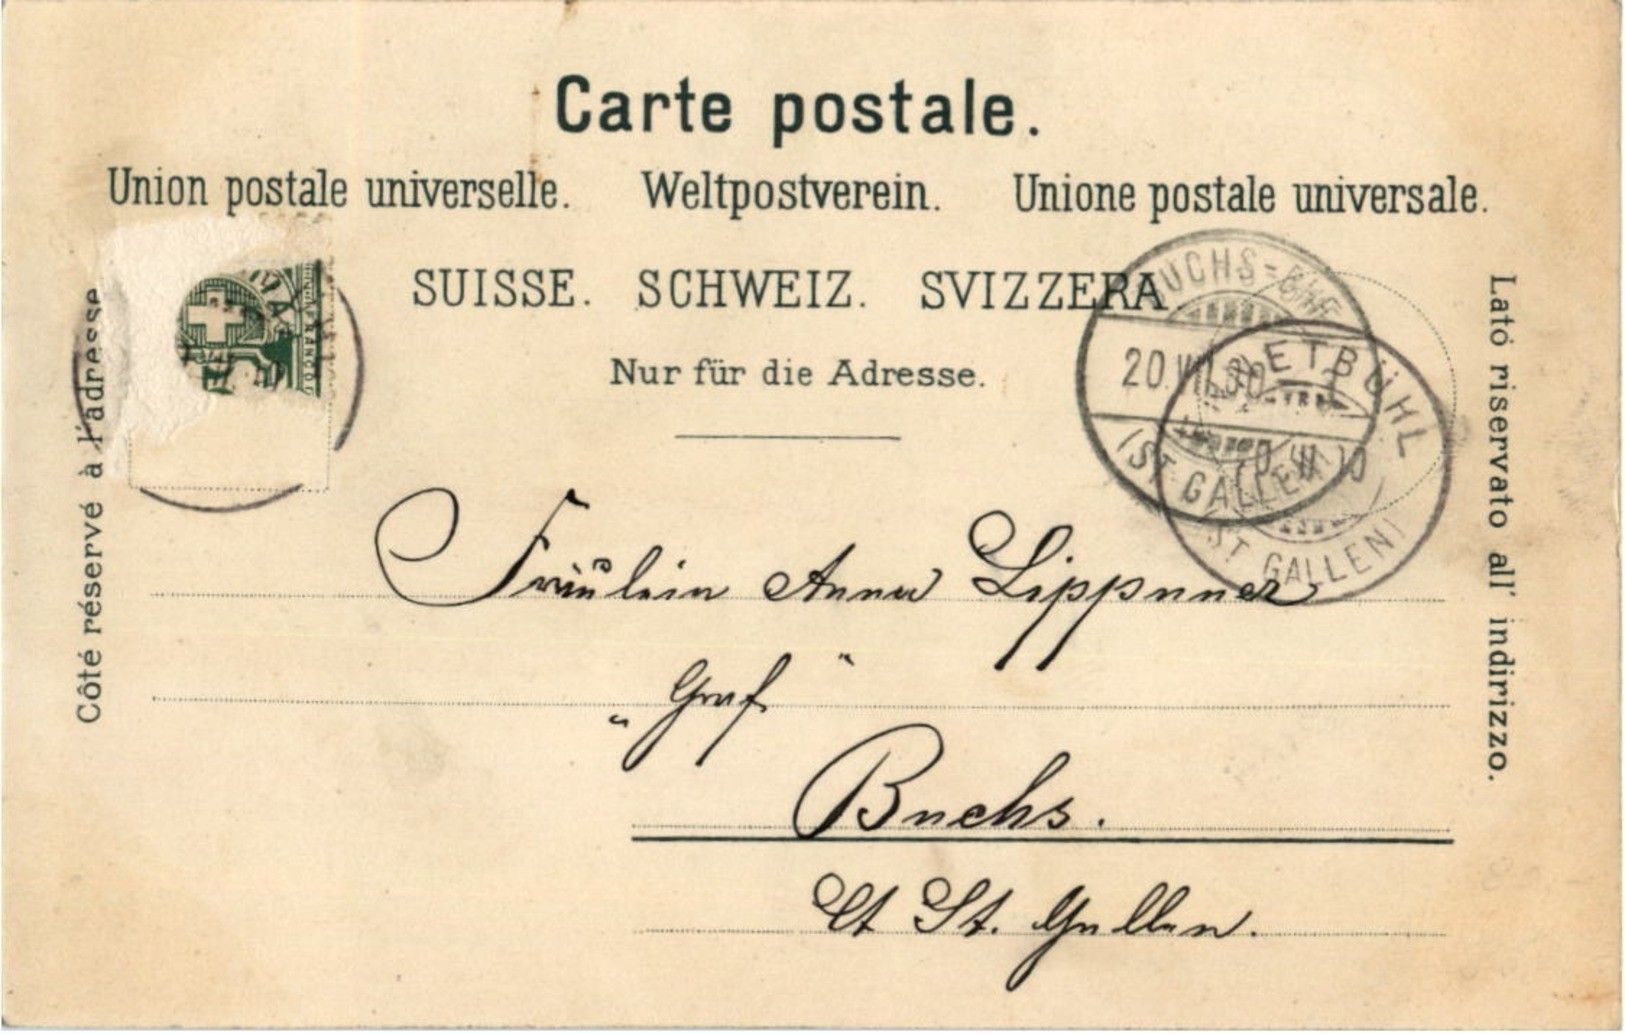 Carte postale.
Union postale universelle. Weltpostverein. Unione postale universale.
SUISSE. SCHWEIZ. SVIZZERA
Nur für die Adresse.
Côté réservé à l'adresse
Lato riservato all' indirizzo.
FRANCO
BUCHS=
20.VII.00
(ST. GALLEN)
ETBÜHL
(ST GALLEN)
Fräulein Anna Lippuner
„Graf"
Buchs.
Ct St. Gallen.